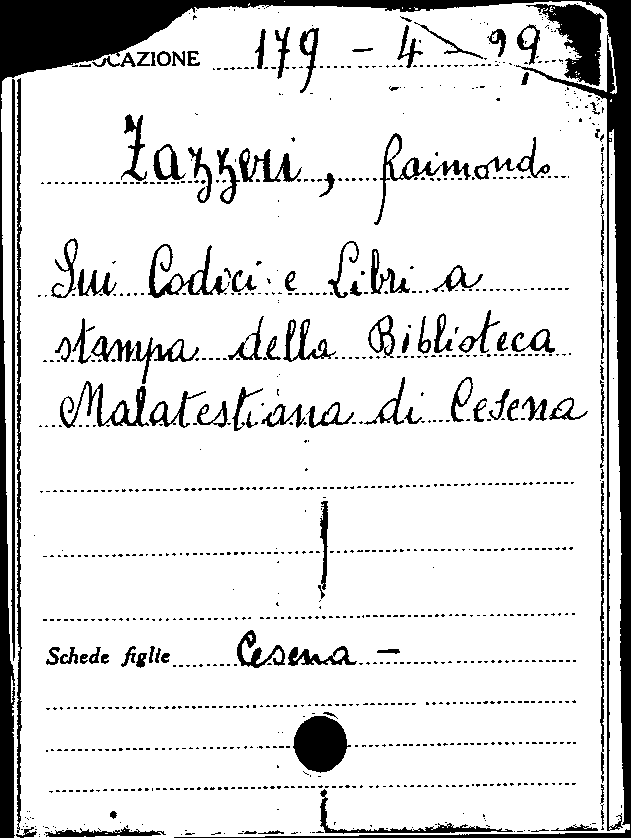 LOCAZIONE 179 - 4 - 99
Zazzeri, Raimondo
Sui Codici e Libri a
stampa della Biblioteca
Malatestiana di Cesena
Schede figlie Cesena -